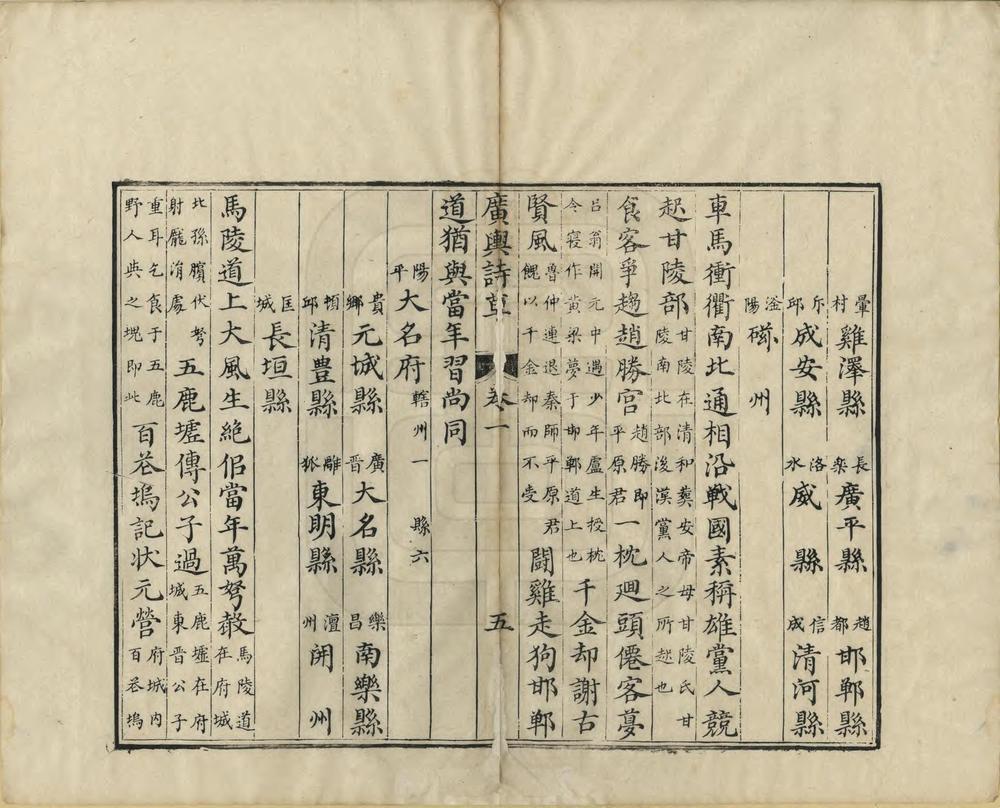 暈村雞澤縣 長樂廣平縣 趙都邯鄲縣
斥邱成安縣 洺水威縣 信成清河縣
滏陽磁州
車馬衝衢南北通相沿戰國素稱雄黨人競
起甘陵部甘陵在清和冀安帝母甘陵氏甘陵南北部後漢黨人之所起也
食客爭趨趙勝宮趙勝即平原君一枕迴頭僊客夢
呂翁開元中遇少年盧生授枕令寢作黃粱夢于邯鄲道上也千金却謝古
賢風魯仲連退秦師平原君餽以千金却而不受鬪雞走狗邯鄲
廣輿詩草 卷一 五
道猶與當年習尚同
陽平大名府轄州一縣六
貴鄉元城縣 廣晉大名縣 樂昌南樂縣
頓邱清豊縣 離狐東明縣 澶州開州
匡城長垣縣
馬陵道上大風生絶佀當年萬弩發馬陵道在府城
北孫臏伏弩射龐涓處五鹿墟傳公子過五鹿墟在府城東晉公子
重耳乞食于五鹿野人與之塊即此百芲塢記狀元營府城內百芲塢